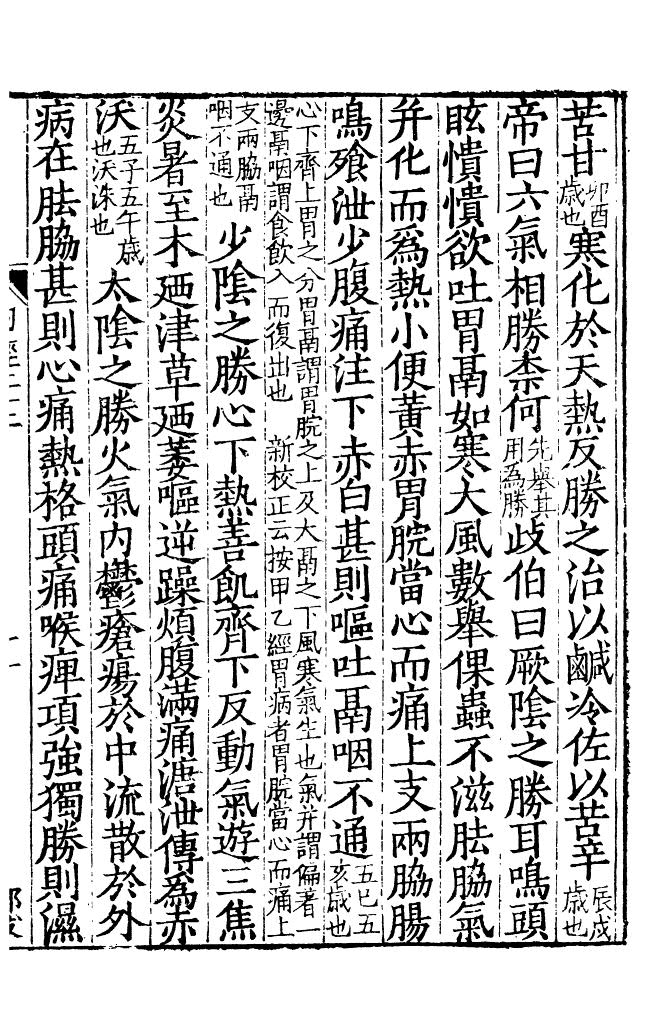 苦甘卯酉歲也寒化於天熱反勝之治以鹹冷佐以苦辛辰戌歲也
帝曰六氣相勝柰何先舉其用為勝歧伯曰厥陰之勝耳鳴頭
眩憒憒欲吐胃鬲如寒大風數舉倮蟲不滋胠脇氣
并化而為熱小便黃赤胃脘當心而痛上支兩脇腸
鳴飧泄少腹痛注下赤白甚則嘔吐鬲咽不通五巳五亥歲也
心下齊上胃之分胃鬲謂胃脘之上及大鬲之下風寒氣生也氣并謂偏著一
邊鬲咽謂食飲入而復出也 新校正云按甲乙經胃病者胃脘當心而痛上
支兩脇鬲咽不通也 少陰之勝心下熱善飢齊下反動氣遊三焦
炎暑至木廼津草廼萎嘔逆躁煩腹滿痛溏泄傳為赤
沃五子五午歲也沃沬也 太陰之勝火氣内鬱瘡瘍於中流散於外
病在胠脇甚則心痛熱格頭痛喉痺項強獨勝則濕